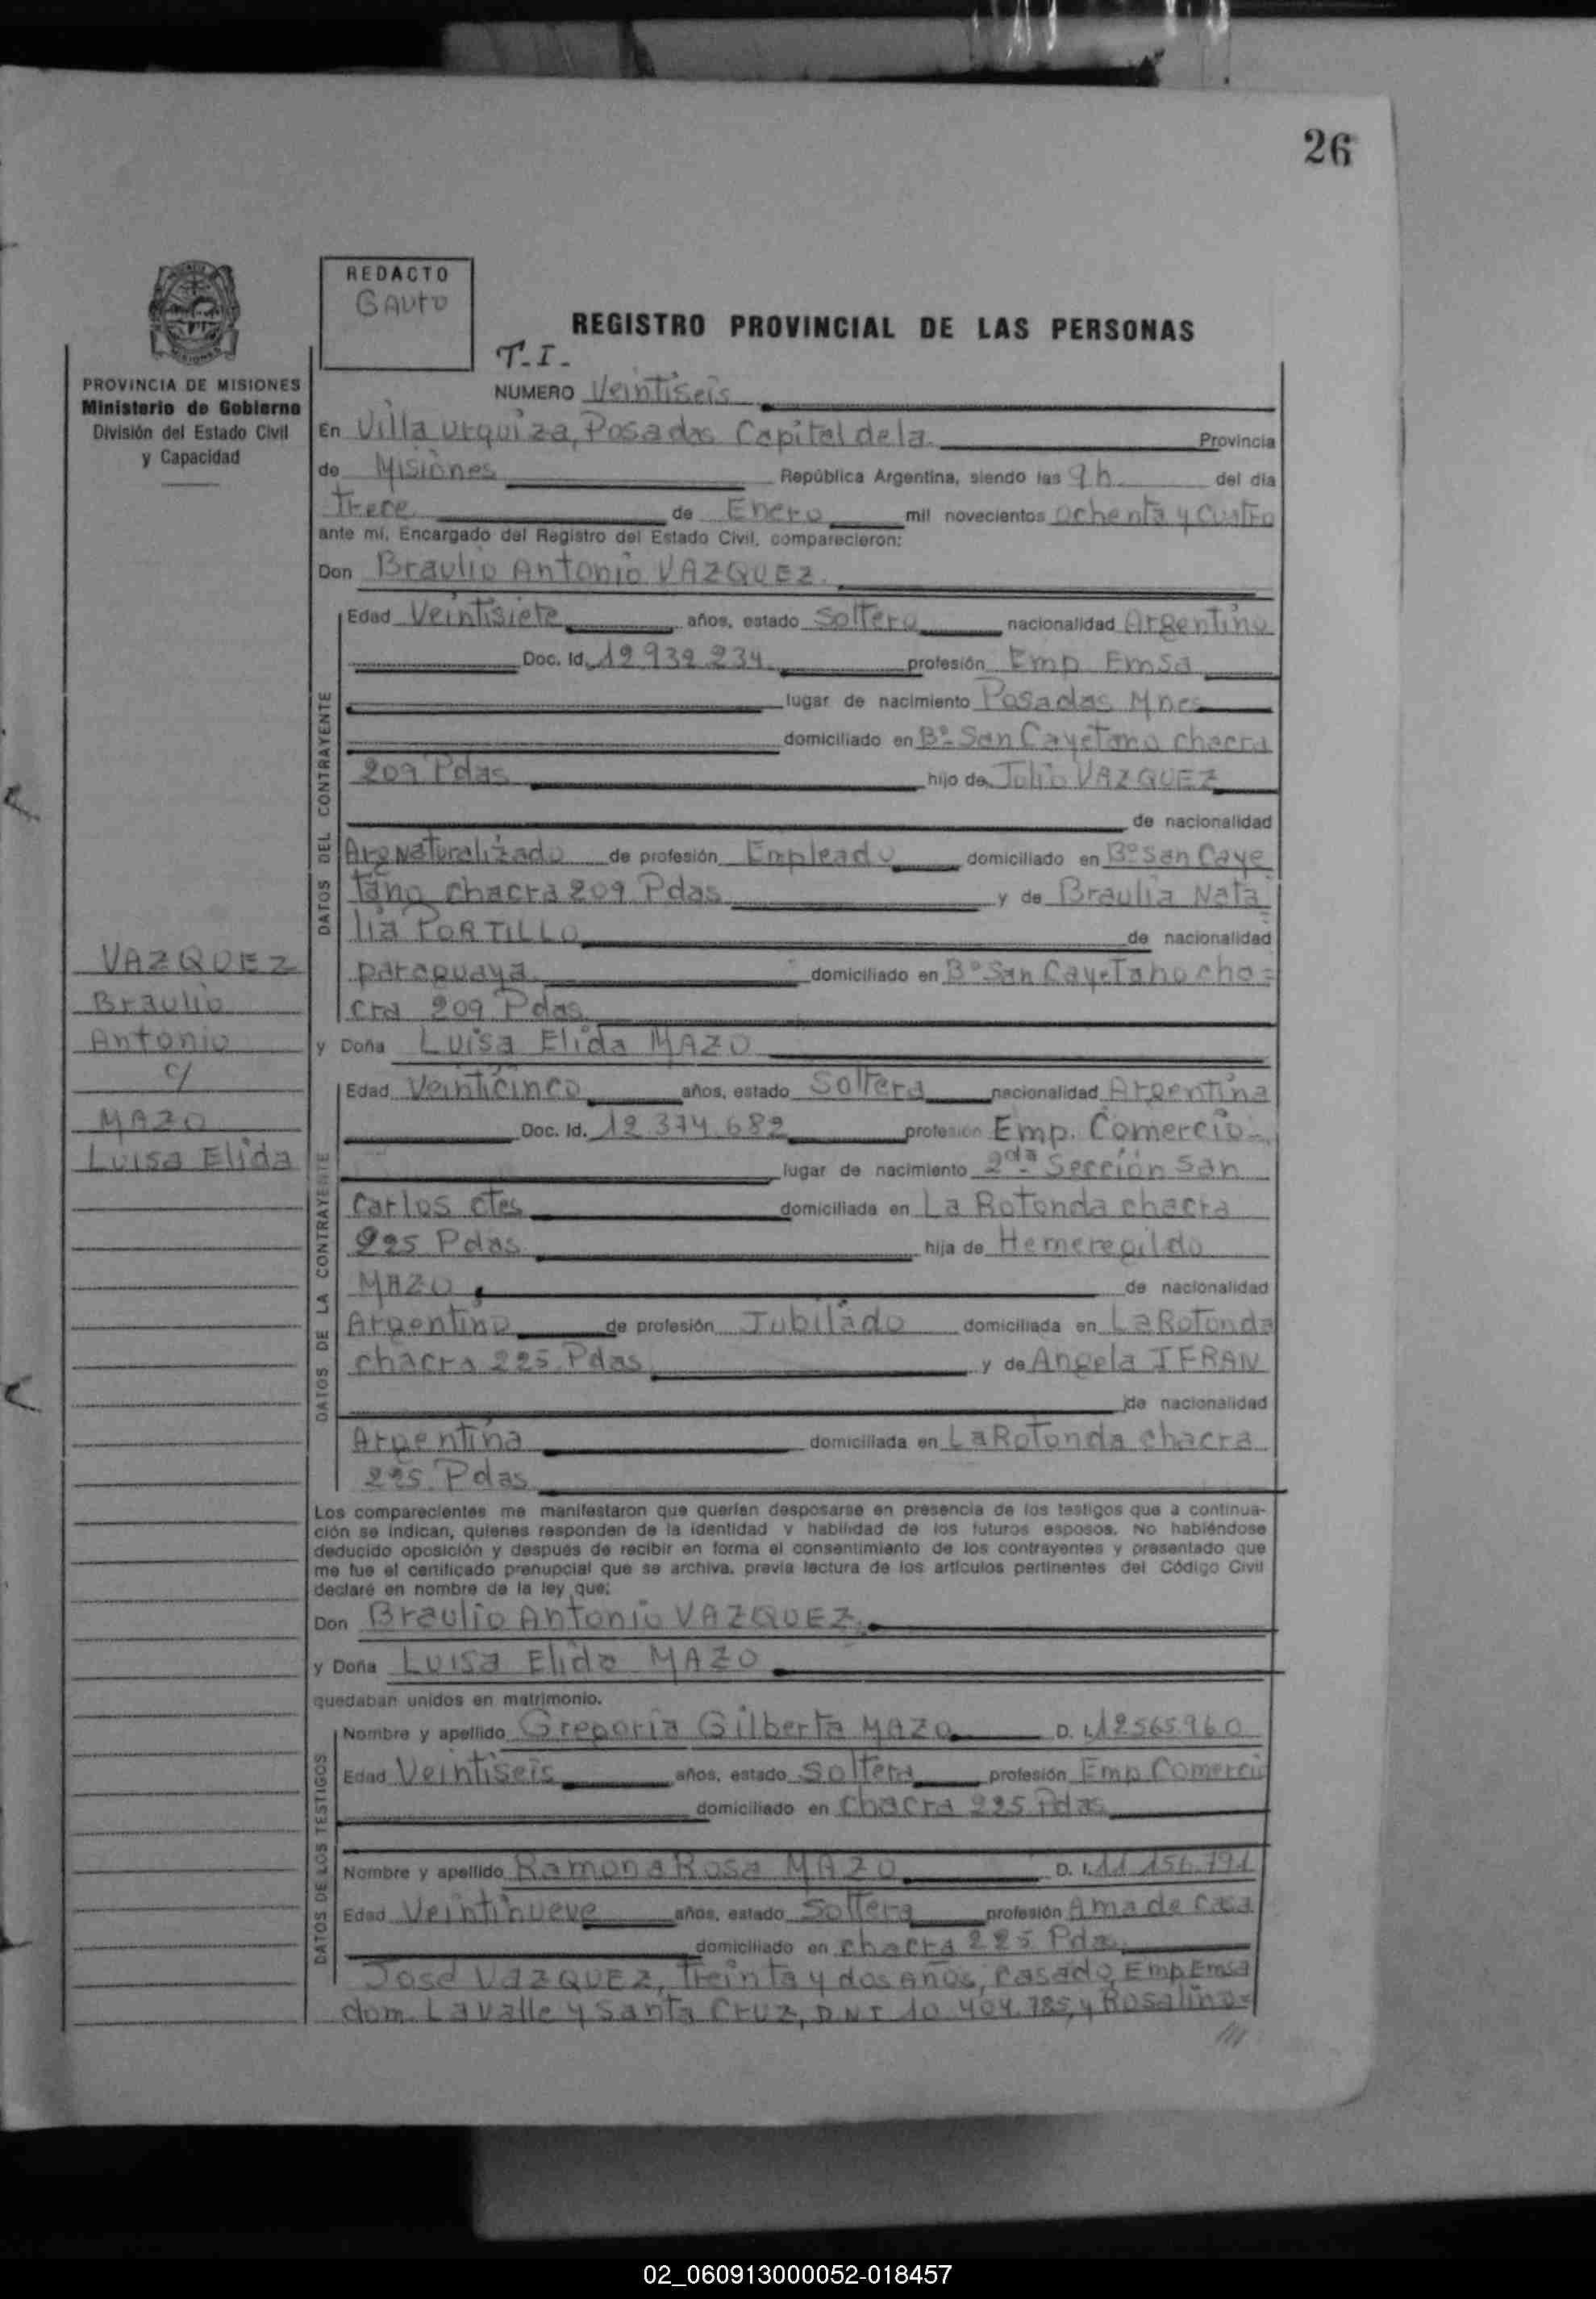 26
REDACTO
Gauto
REGISTRO PROVINCIAL DE LAS PERSONAS
T.I.
PROVINCIA DE MISIONES
Ministerio de Gobierno
División del Estado Civil
y Capacidad
NUMERO Veintiseis
En Villa Urquiza, Posadas Capital de la Provincia
de Misiones República Argentina, siendo las 9 h del día
Trece de Enero mil novecientos ochenta y cuatro
ante mí, Encargado del Registro del Estado Civil, comparecieron:
Don Braulio Antonio VAZQUEZ
DATOS DEL CONTRAYENTE
Edad Veintisiete años, estado Soltero nacionalidad Argentino
Doc. Id. 12 932 234 profesión Emp Emsa
lugar de nacimiento Posadas Mnes
domiciliado en Bº San Cayetano chacra
209 Pdas hijo de Julio VAZQUEZ
de nacionalidad
Arg Naturalizado de profesión Empleado domiciliado en Bº San Caye
tano chacra 209 Pdas y de Braulia Nata
lia PORTILLO de nacionalidad
paraguaya domiciliado en Bº San Cayetano cha=
cra 209 Pdas
VAZQUEZ
Braulio
Antonio
c/
MAZO
Luisa Elida
y Doña Luisa Elida MAZO
DATOS DE LA CONTRAYENTE
Edad Veinticinco años, estado Soltera nacionalidad Argentina
Doc. Id. 12 374 682 profesión Emp. Comercio
lugar de nacimiento 2da Sección San
Carlos Ctes domiciliada en La Rotonda chacra
225 Pdas hija de Hemeregildo
MAZO de nacionalidad
Argentino de profesión Jubilado domiciliada en La Rotonda
chacra 225 Pdas y de Angela IFRAN
de nacionalidad
Argentina domiciliada en La Rotonda chacra
225 Pdas
Los comparecientes me manifestaron que querían desposarse en presencia de los testigos que a continua-
ción se indican, quienes responden de la identidad y habilidad de los futuros esposos. No habiéndose
deducido oposición y después de recibir en forma el consentimiento de los contrayentes y presentado que
me fue el certificado prenupcial que se archiva, previa lectura de los artículos pertinentes del Código Civil
declaré en nombre de la ley que:
Don Braulio Antonio VAZQUEZ
y Doña Luisa Elida MAZO
quedaban unidos en matrimonio.
DATOS DE LOS TESTIGOS
Nombre y apellido Gregoria Gilberta MAZO D. I. 12565960
Edad Veintiseis años, estado Soltera profesión Emp Comercio
domiciliado en Chacra 225 Pdas
Nombre y apellido Ramona Rosa MAZO D. I. 11 156 791
Edad Veintinueve años, estado Soltera profesión Ama de casa
domiciliado en chacra 225 Pdas
José VAZQUEZ, Treinta y dos años, casado, Emp Emsa
dom. Lavalle y Santa Cruz, DNI 10 404 785, y Rosalino=
///
02_060913000052-018457